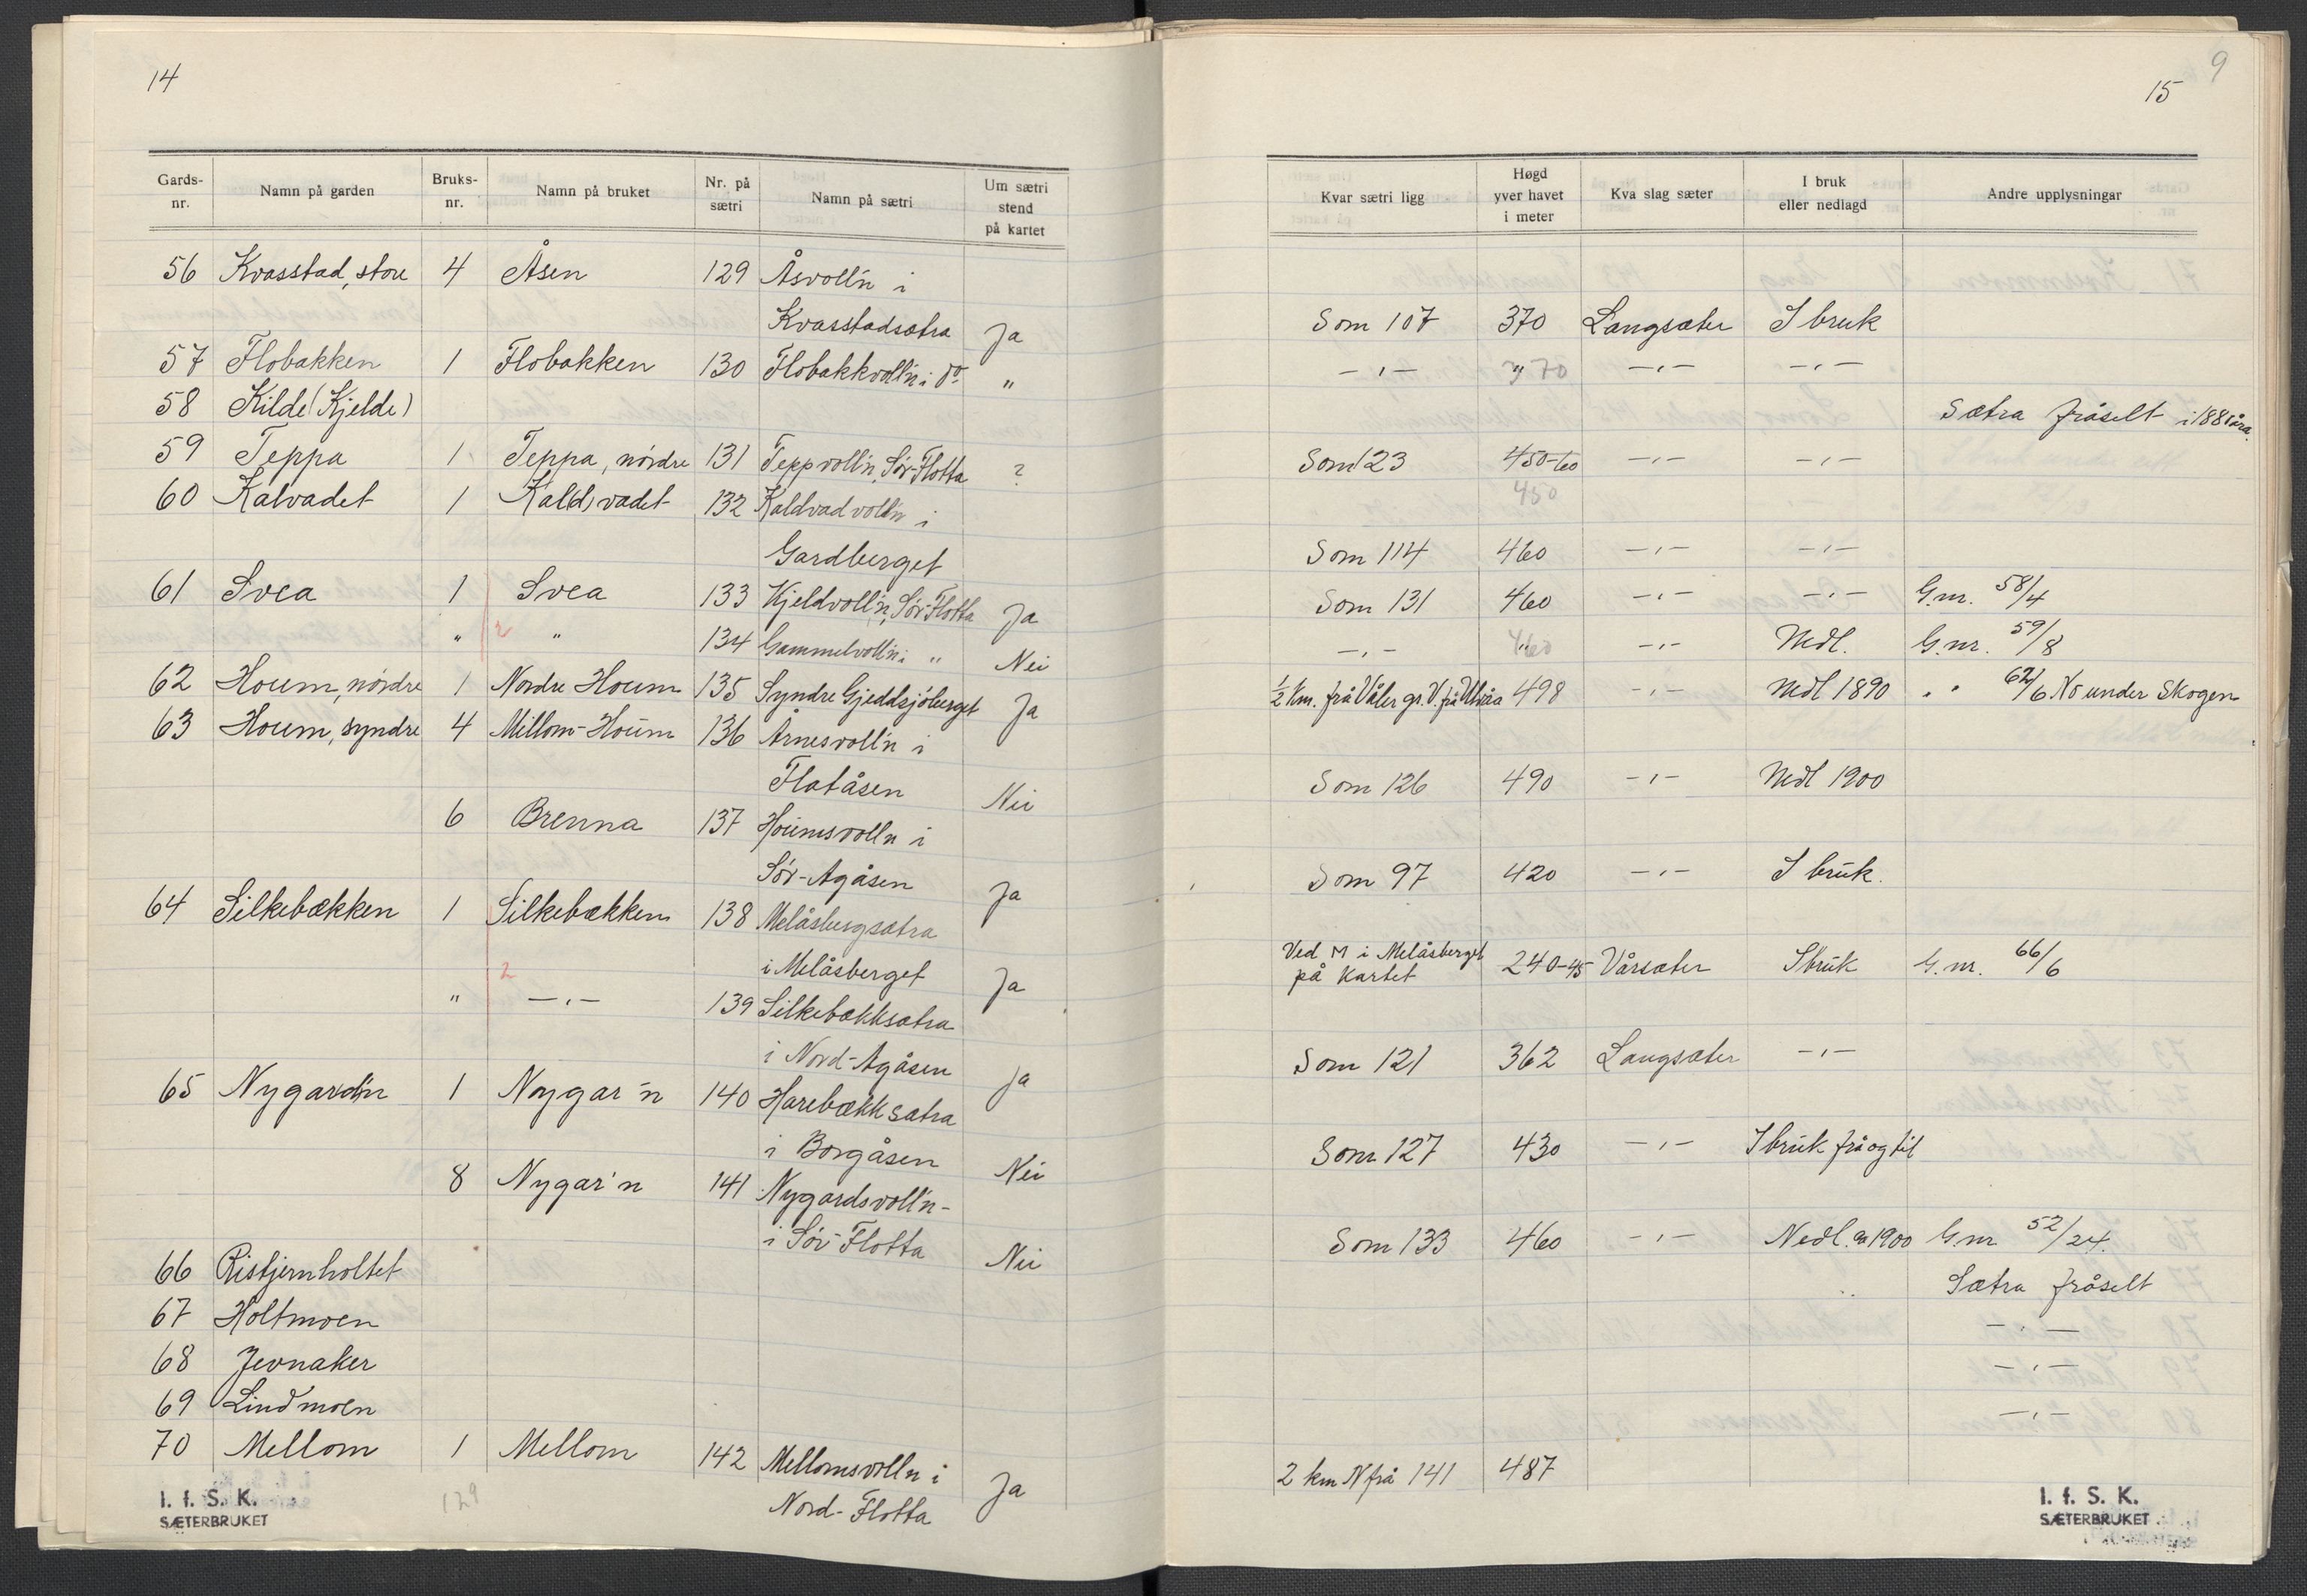 14
Gards-nr. Namn på garden Bruks-nr. Namn på bruket Nr. på sætri Namn på sætri Um sætri stend på kartet
56 Kvasstad, store 4 Åsen 129 Åsvoll'n i
Kvasstadsætra Ja
57 Flobakken 1 Flobakken 130 Flobakkvoll'n i do "
58 Kilde (Kjelde)
59 Teppa 1 Teppa, nørdre 131 Teppvoll'n, Sør-Flotta ?
60 Kalvadet 1 Kald)vadet 132 Kaldvadvoll'n i
Gardberget
61 Svea 1 Svea 133 Kjeldvoll'n, Sør-Flotta Ja
" 2 " 134 Gammelvoll'n i " Nei
62 Houm, nørdre 1 Nordre Houm 135 Syndre Gjeddsjøberget Ja
63 Houm, syndre 4 Millom-Houm 136 Årnesvoll'n i
Flatåsen Nei
6 Brenna 137 Houmsvolln i
Sør-Agåsen Ja
64 Silkebækken 1 Silkebækken 138 Melåsbergsætra
2 i Melåsberget Ja
" -"- 139 Silkebækksætra
i Nord-Agåsen Ja
65 Nygard'n 1 Nygar'n 140 Harebækksætra
i Borgåsen Nei
8 Nygar'n 141 Nygardsvoll'n-
i Sør-Flotta Nei
66 Ristjernholtet
67 Holtmoen
68 Jevnaker
69 Lindmoen
70 Mellom 1 Mellom 142 Mellomsvolln i
Nord-Flotta Ja
129
I. f. S. K.
SÆTERBRUKET
9
15
Kvar sætri ligg Høgd yver havet i meter Kva slag sæter I bruk eller nedlagd Andre upplysningar
Som 107 370 Langsæter I bruk
-"- 370 -"- -"-
Sætra fråselt i 1881åra.
Som 123 450-60 -"- -"-
450
Som 114 460 -"- -"-
Som 131 460 -"- -"- G.nr. 58/4
-"- 460 -"- Nedl. G.nr. 59/8
1/2 km. frå Våler gr. V. frå 498 -"- Nedl 1890 " " 62/6 No under Skogen
Som 126 490 -"- Nedl 1900
Som 97 420 -"- I bruk.
Ved M i Melåsberget
på Kartet 240-45 Vårsæter I bruk G.nr. 66/6
Som 121 362 Langsæter -"-
Som 127 430 -"- I bruk frå og til
Som 133 460 -"- Nedl. ca 1900 G.nr 52/24.
Sætra fråselt
-"-
-"-
-"-
2 km N frå 141 487
I. f. S. K.
SÆTERBRUKET